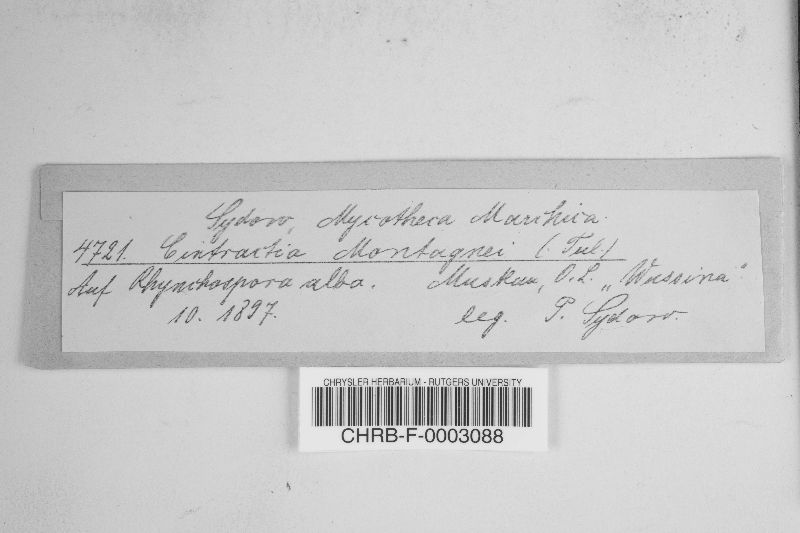 Sydow, Mycotheca Marchica.
4721. Cintractia Montagnei (Tul.)
Auf Rhynchospora alba. Muskau, O.L. „Wussina“
10. 1897. leg. P. Sydow.
CHRYSLER HERBARIUM - RUTGERS UNIVERSITY
CHRB-F-0003088